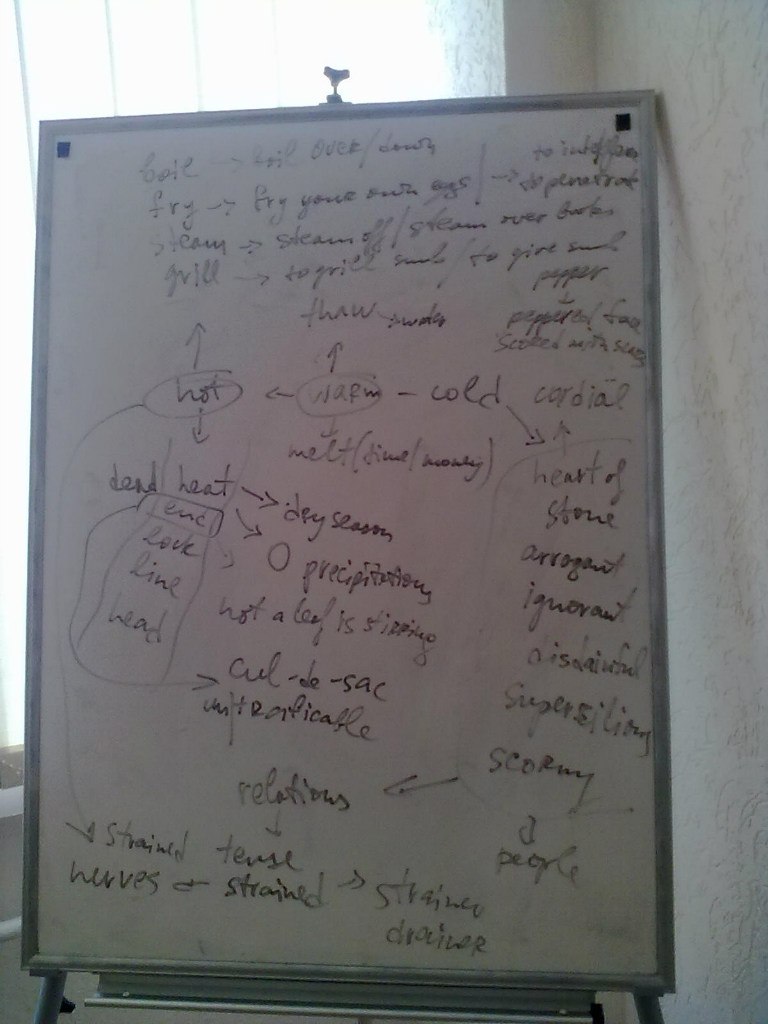 boil → boil over/down
fry → fry your own eggs / → to penetrate
steam → steam off / steam over books
grill → to grill smb / to give smb
pepper
thaw
peppered face
hot ← warm – cold cordial
melt (time/money)
heart of
stone
dead heat → dry season
end
lock
line
head
O precipitations
arrogant
ignorant
not a leaf is stirring
disdainful
cul-de-sac
supersilious
scorny
relations ←
people
strained tense
nerves ← strained → strainer
drainer